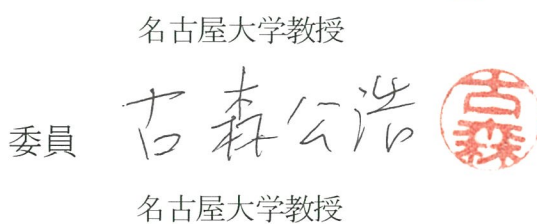 名古屋大学教授
委員 古森公浩 古森
名古屋大学教授